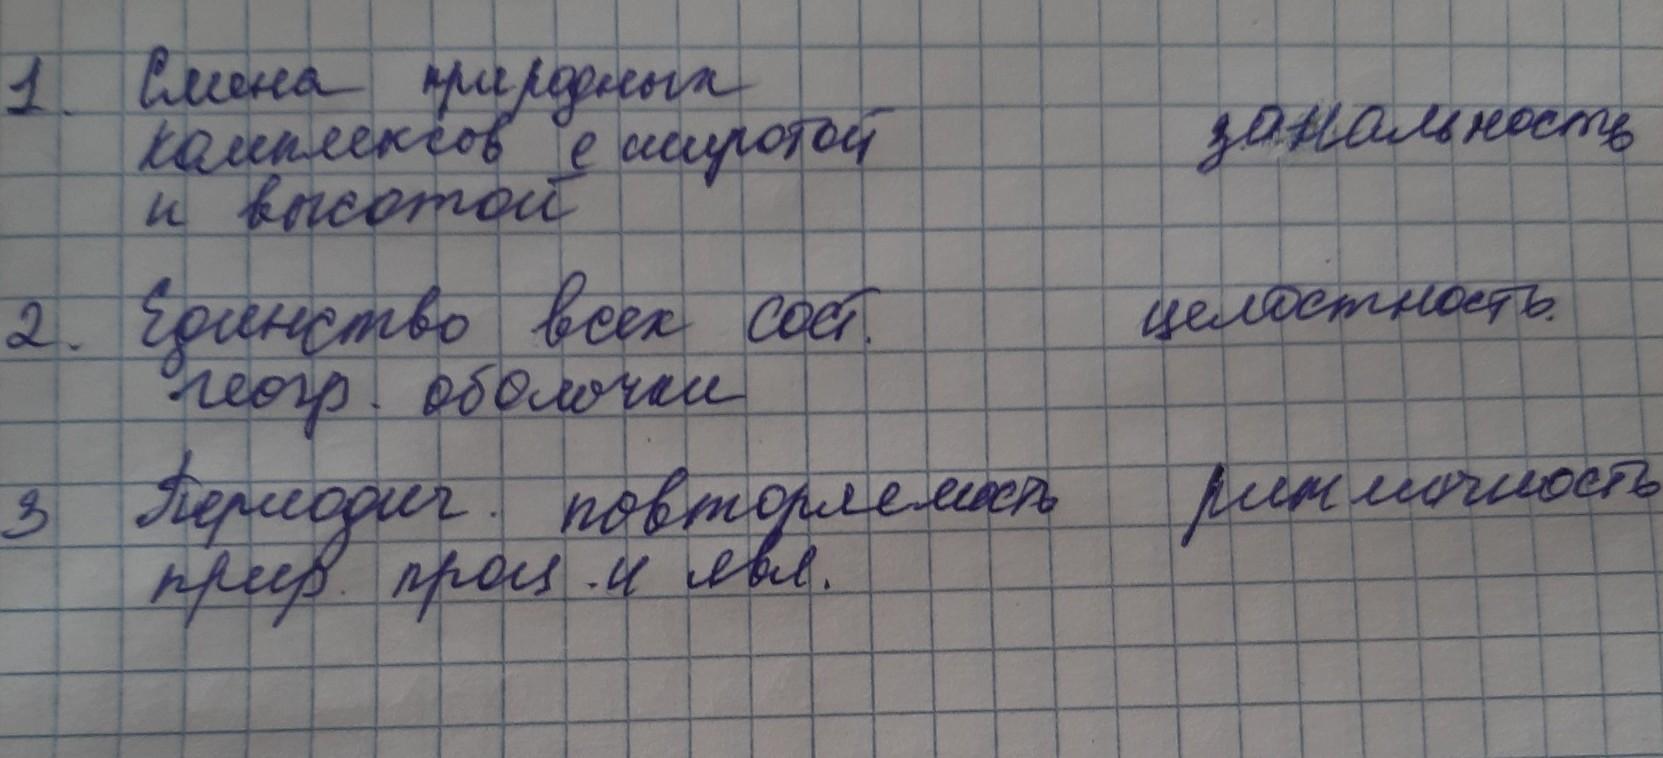 1. Смена природных
комплексов с широтой зональность
и высотой
2. Единство всех сост. целостность.
геогр. оболочки
3 Периодич. повторяемость ритмичность
прир. проц. и явл.